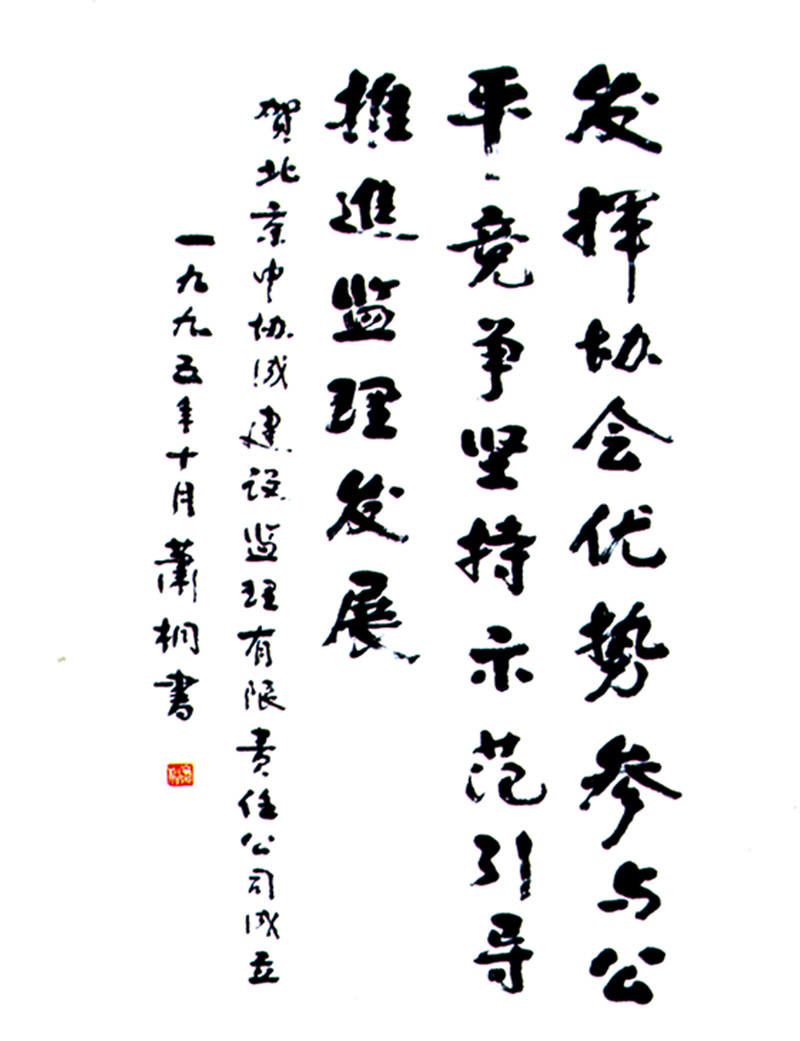 发挥协会优势参与公
平竞争坚持示范引导
推進监理发展
贺北京中协成建设监理有限责任公司成立
一九九五年十月萧桐書